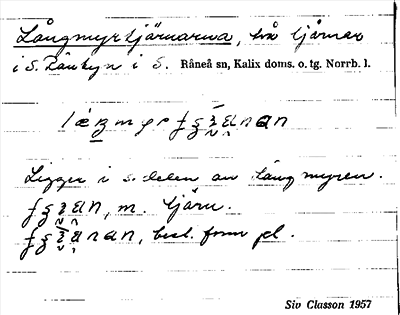 Långmyrtjärnarna, två tjärnar
i S. Rånbyn i S. Råneå sn, Kalix doms. o. tg. Norrb. l.
Ligger i s. delen av Långmyren.
m. tjärn.
best. form pl.
Siv Classon 1957